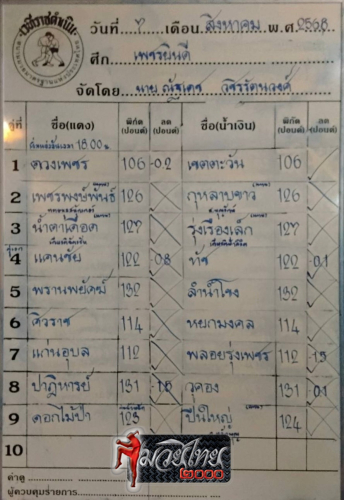 เวทีราชดำเนิน
วันที่ ๗ เดือน สิงหาคม พ.ศ. 2568
ศึก เพชรยินดี
จัดโดย นาย ณัฐเดช วชิรรัตนวงศ์
คู่ที่ ชื่อ(แดง) พิกัด (ปอนด์) ลด (ปอนด์) ชื่อ(น้ำเงิน) พิกัด (ปอนด์) ลด (ปอนด์)
18.00 น.
1 ดวงเพชร 106 0.2 เขตตะวัน 106
2 เพชรพงษ์พันธ์ 126 กุหลาบขาว 126
3 น้ำตาเดือด 127 รุ่งเรืองเล็ก 127
คู่เอก
4 แดนชัย 122 0.8 ทัช 122 0.1
5 พรานพยัคฆ์ 132 ลำน้ำโขง 132
6 ศิวราช 114 หยกมงคล 114
7 แก่นอุบล 112 พลอยรุ่งเพชร 112 1.5
8 ปาฏิหารย์ 131 1.5 วุคอง 131 0.1
9 ดอกไม้ป่า 123 ปืนใหญ่ 124
10
ค่าดู
ผู้ควบคุมรายการ
มวยไทย
๒๐๐๐